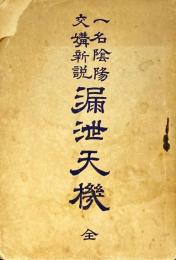 一名陰陽
交媾新説
漏泄天機
全